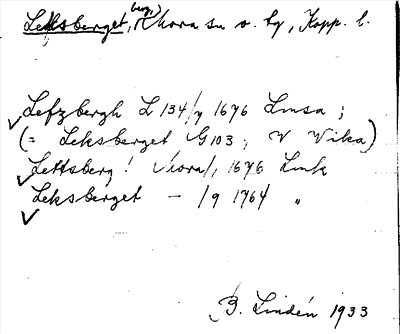 Leksberget, berg, Khora sn o. by, Kopp. l.
Lefzbergh L 134/7 1676 Lmsa ;
(= Leksberget G 103, V Wika)
Lettsberg ! 1676 Lmk
Leksberget — /9 1764 "
B. Lindén 1933